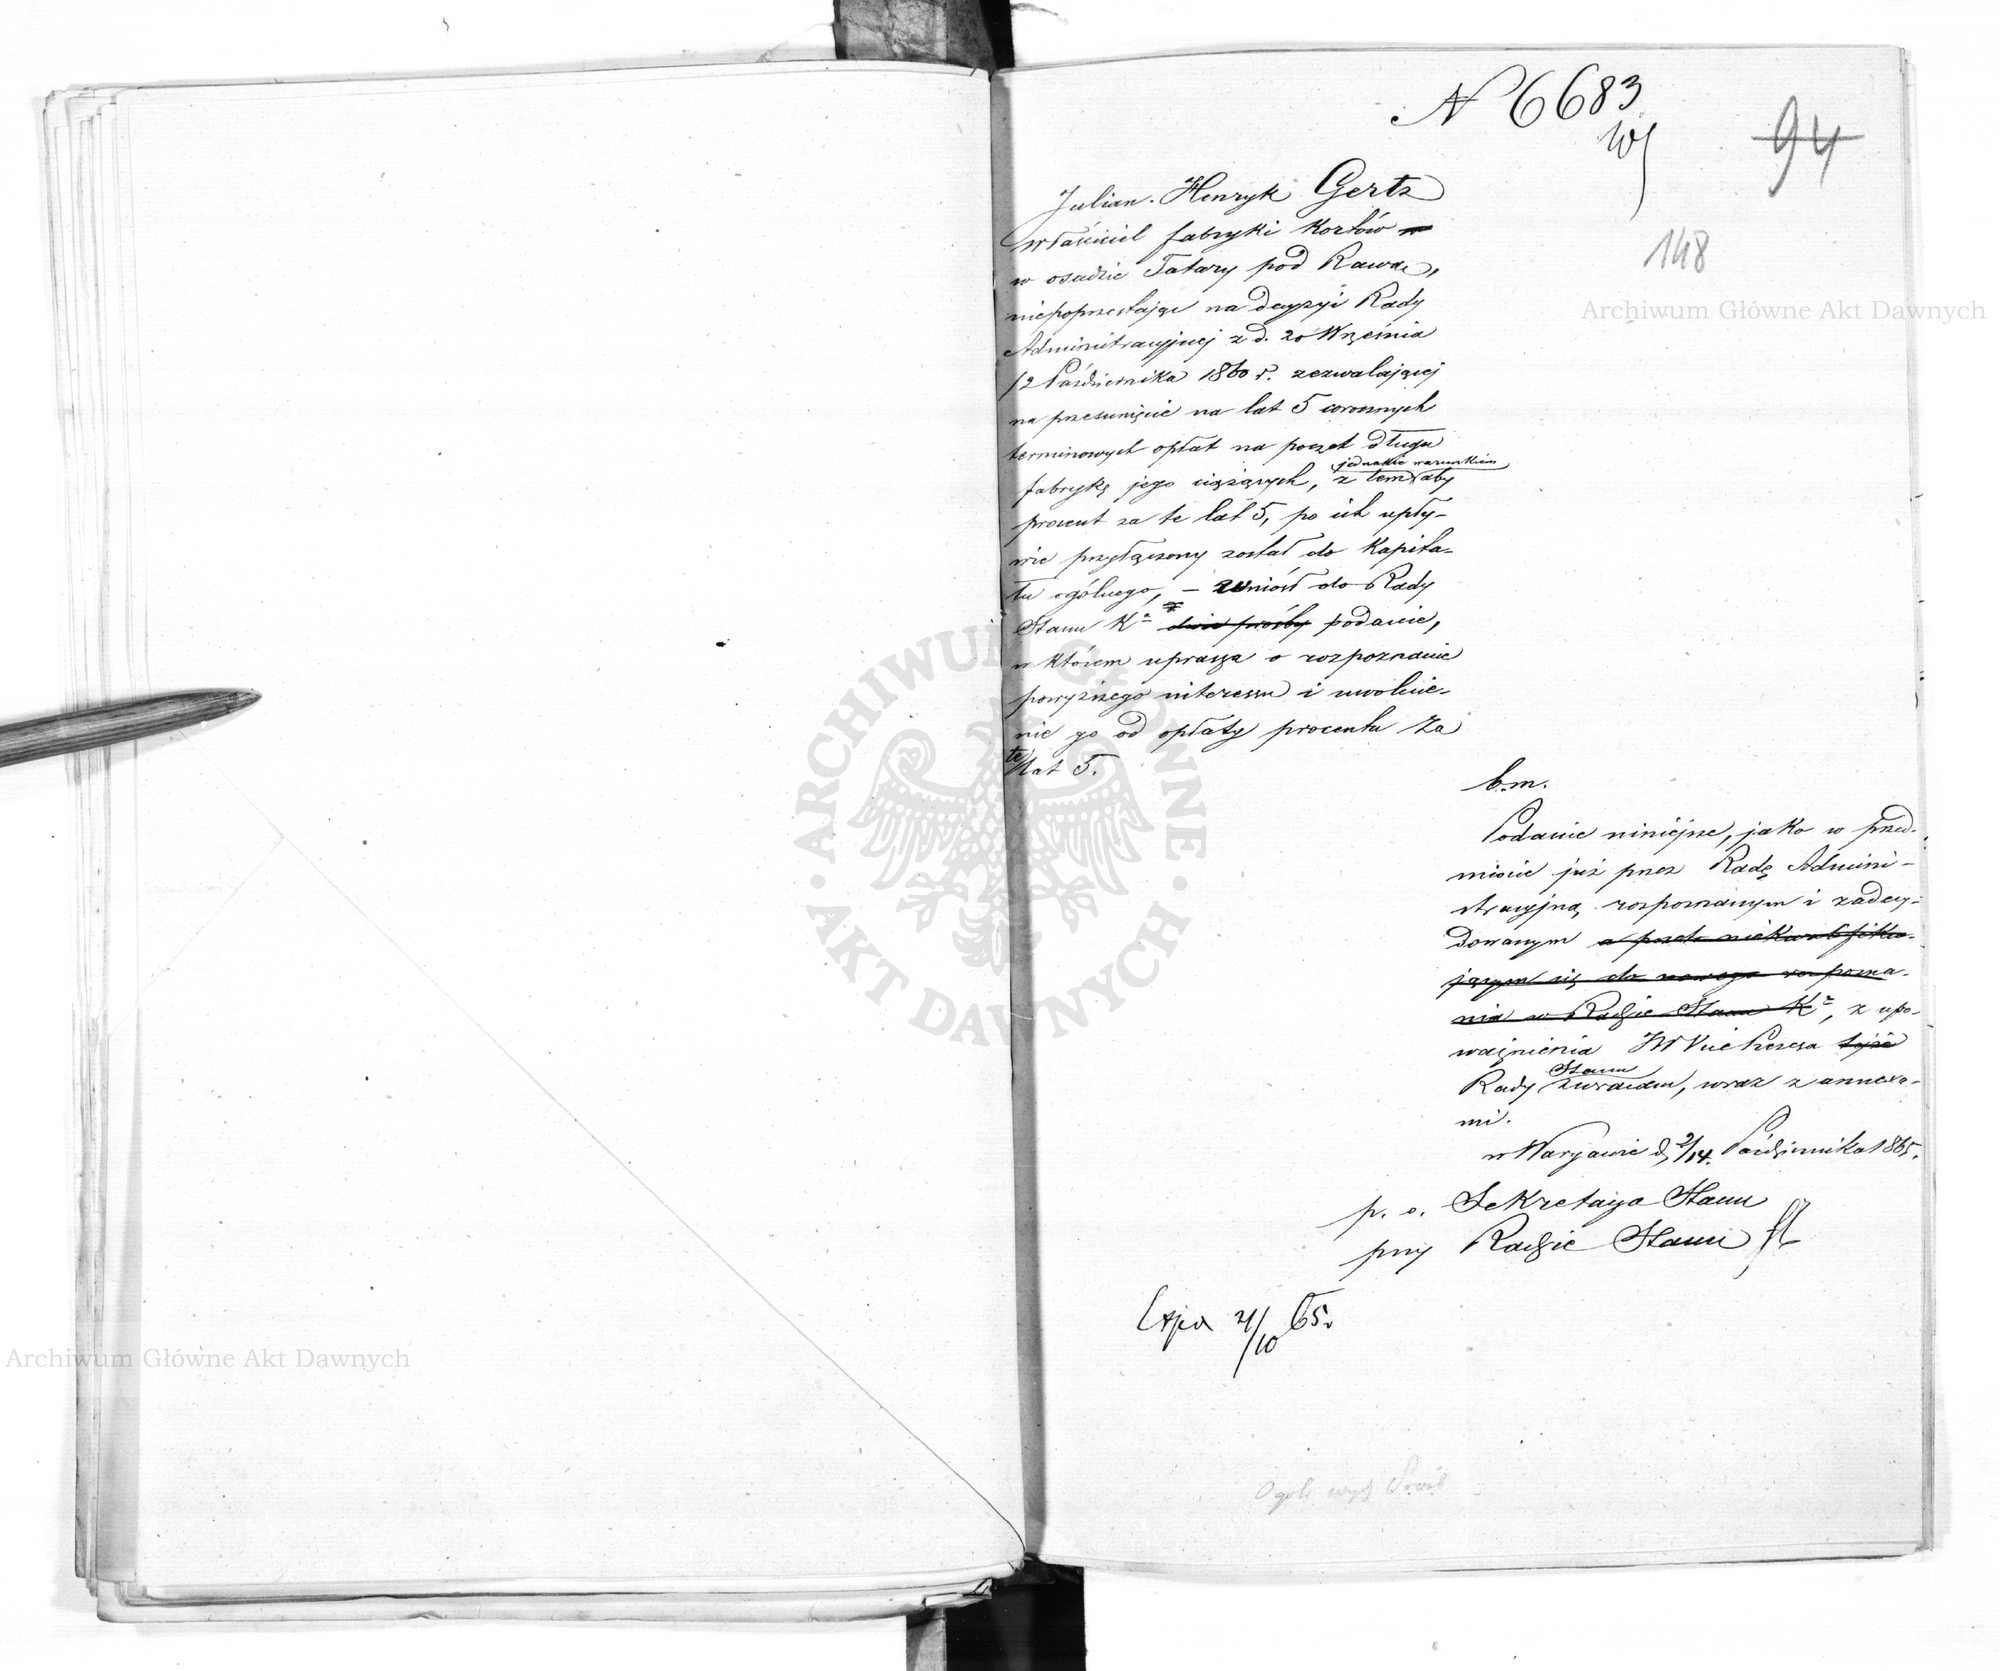 N 6683
94
148
Julian Henryk Gertz
właściciel fabryki Kortów
w osadzie Tatary pod Rawą,
niepoprzestając na decyzyi Rady
Administracyjnej z d. 20 Września
/2 Października 1860 r. zezwalającej
na przesunięcie na lat 5 corocznych
terminowych opłat na poczet długu
fabrykę jego ciążących, z tem jednakże warunkiem aby
procent za te lat 5, po ich upły-
wie przyłączony został do Kapita-
łu ogólnego, – wniósł do Rady
Stanu Kr dwie prośby podanie,
w którem uprasza o rozpoznanie
powyższego interesu i uwolnie-
nie go od opłaty procentu za
te lat 5.
b.m.
Podanie niniejsze, jako w przed-
miocie już przez Radę Admini-
stracyjną rozpoznanym i zadecy-
dowanym a przeto niekwalifiku-
jącym się do nowego rozpozna-
nia w Radzie Stanu Kr, z upo-
ważnienia JW Vice Prezesa tejże
Rady Stanu zwracam, wraz z annexa-
mi.
w Warszawie d. 2/14 Października 1865.
p. o. Sekretarza Stanu
przy Radzie Stanu
Exp 21/10 65.
Archiwum Główne Akt Dawnych
Archiwum Główne Akt Dawnych
ARCHIWUM GŁÓWNE
AKT DAWNYCH